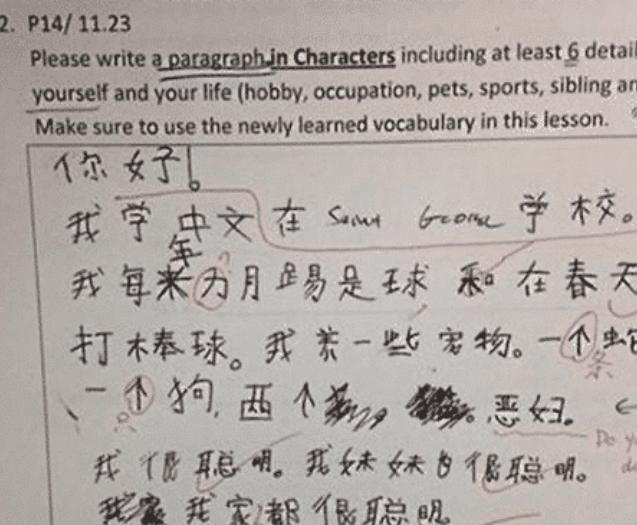 2. P14/ 11.23
Please write a paragraph in Characters including at least 6 detail
yourself and your life (hobby, occupation, pets, sports, sibling an
Make sure to use the newly learned vocabulary in this lesson.
你好!。
我学中文在 Saint George 学校。
年
我每为月踢足球和在春天
打棒球。我养一些宠物。一个蛇
条
一个狗,西个
只
恶妞。
Do yo
我很聪明。我妹妹也很聪明。
我家都很聪明